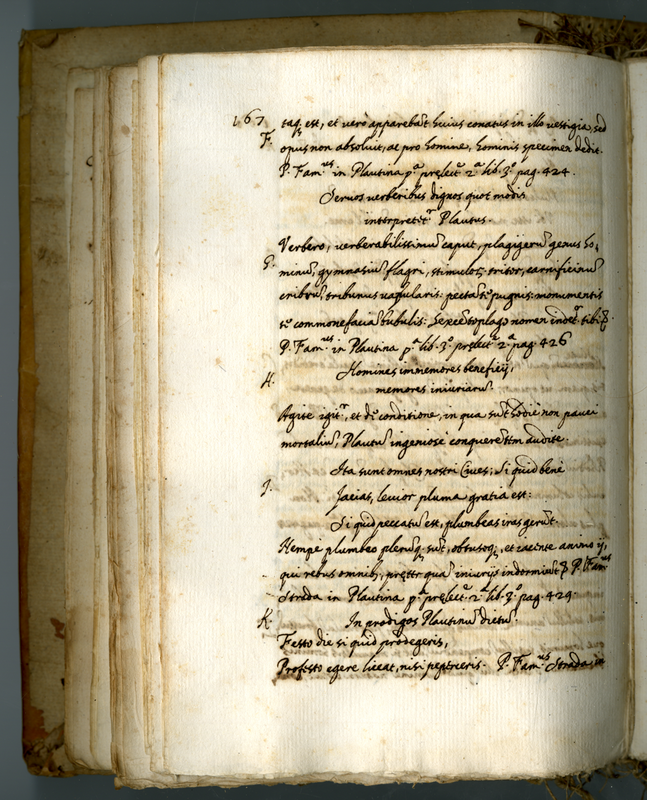 167 taq; est, et vero apparebāt huius conatus in illo vestigia, sed
F. opus non absoluit, ac pro homine, hominis specimen dedit.
P. Fam.us in Plautina p.a prelect.e 2.a lib. 3.o pag. 424.
Seruos verberibus dignos quot modis
interpretet.r Plautus.
G. Verbero, verberabilissimū caput, plagigerū genus ho,
minū, gymnasiū flagri, stimulor, tritor, carnificinū
cribrū, tribunus vapularis: pugnis: monumentis
commonefaciā bubulis: nomen tibi &.
P. Fam.us in Plautina p.a lib. 3.o prelect.e 2.a pag. 426
H. Homines immemores beneficij,
memores iniuriarū.
Agite igit.r, et de conditione, in qua sūt hodie non pauci
mortaliū, Plautū ingeniose conquerētem audite.
Ita sunt omnes nostri Ciues; Si quid bene
J. facias, leuior pluma gratia est:
Si quid peccatū est, plumbeas iras gerūt.
Nempe plumbeo plerūq; sūt, obtusoq;, et iacente animo ij,
qui rebus omnib;, preter quā iniurijs indormiūt & P. Fam.us
Strada in Plautina p.a prelect.e 2.a lib. 3.o pag. 429.
K. In prodigos Plautinū dictū.
Festo die si quid prodegeris,
Profesto egere liceat, nisi peperceris. P. Fam.us Strada in